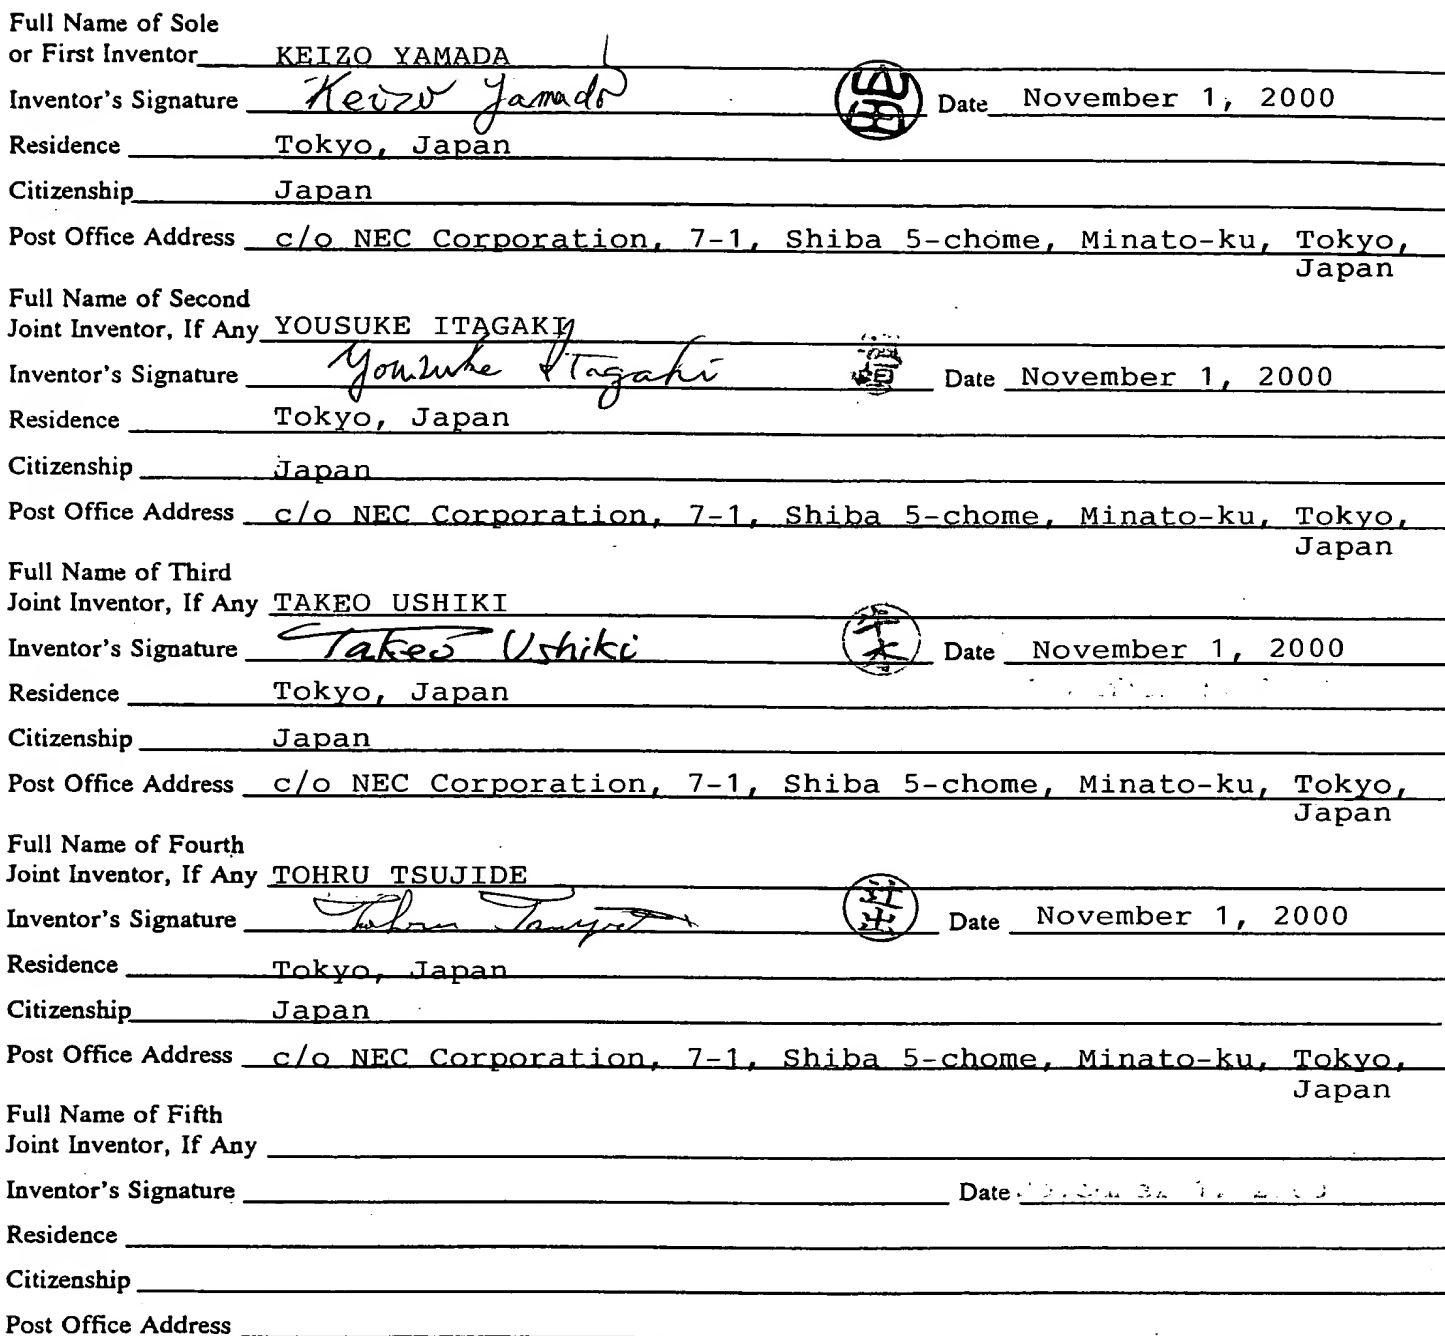 Full Name of Sole
or First Inventor KEIZO YAMADA
Inventor's Signature Keizo Yamada 山田 Date November 1, 2000
Residence Tokyo, Japan
Citizenship Japan
Post Office Address c/o NEC Corporation, 7-1, Shiba 5-chome, Minato-ku, Tokyo,
Japan
Full Name of Second
Joint Inventor, If Any YOUSUKE ITAGAKI
Inventor's Signature Yousuke Itagaki Date November 1, 2000
Residence Tokyo, Japan
Citizenship Japan
Post Office Address c/o NEC Corporation, 7-1, Shiba 5-chome, Minato-ku, Tokyo,
Japan
Full Name of Third
Joint Inventor, If Any TAKEO USHIKI
Inventor's Signature Takeo Ushiki 牛木 Date November 1, 2000
Residence Tokyo, Japan
Citizenship Japan
Post Office Address c/o NEC Corporation, 7-1, Shiba 5-chome, Minato-ku, Tokyo,
Japan
Full Name of Fourth
Joint Inventor, If Any TOHRU TSUJIDE
Inventor's Signature Tohru Tsujide 辻出 Date November 1, 2000
Residence Tokyo, Japan
Citizenship Japan
Post Office Address c/o NEC Corporation, 7-1, Shiba 5-chome, Minato-ku, Tokyo,
Japan
Full Name of Fifth
Joint Inventor, If Any
Inventor's Signature Date
Residence
Citizenship
Post Office Address